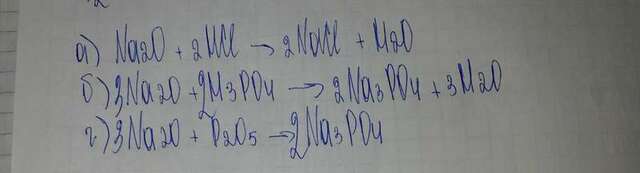 а) Na2O + 2HCl → 2NaCl + H2O
б) 3Na2O + 2H3PO4 → 2Na3PO4 + 3H2O
г) 3Na2O + P2O5 → 2Na3PO4